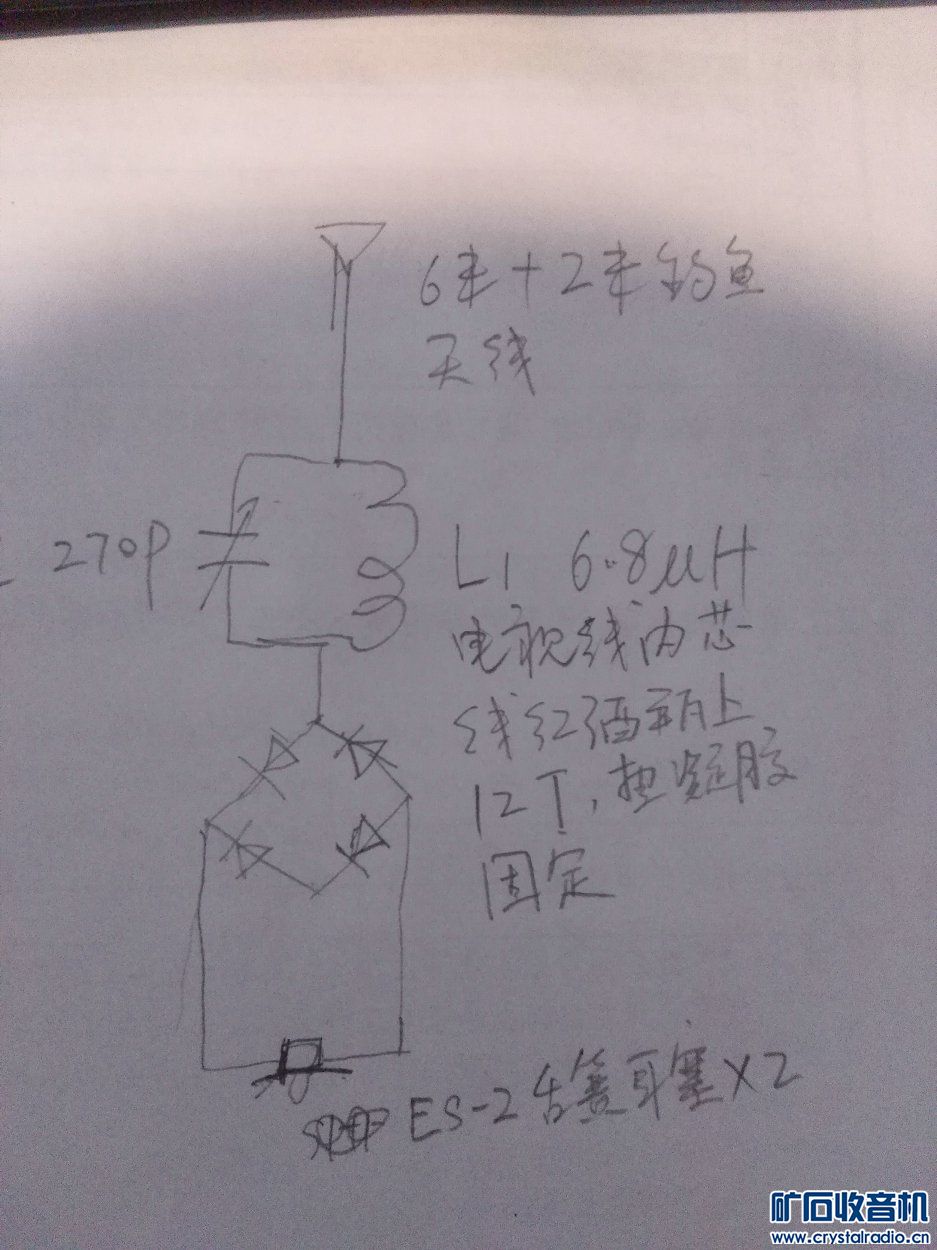 6米+2米钓鱼
天线
270P
L1 6.8μH
电视线内芯
线红酒瓶上
12T,热凝胶
固定
ES-2舌簧耳塞×2
矿石收音机
www.crystalradio.cn